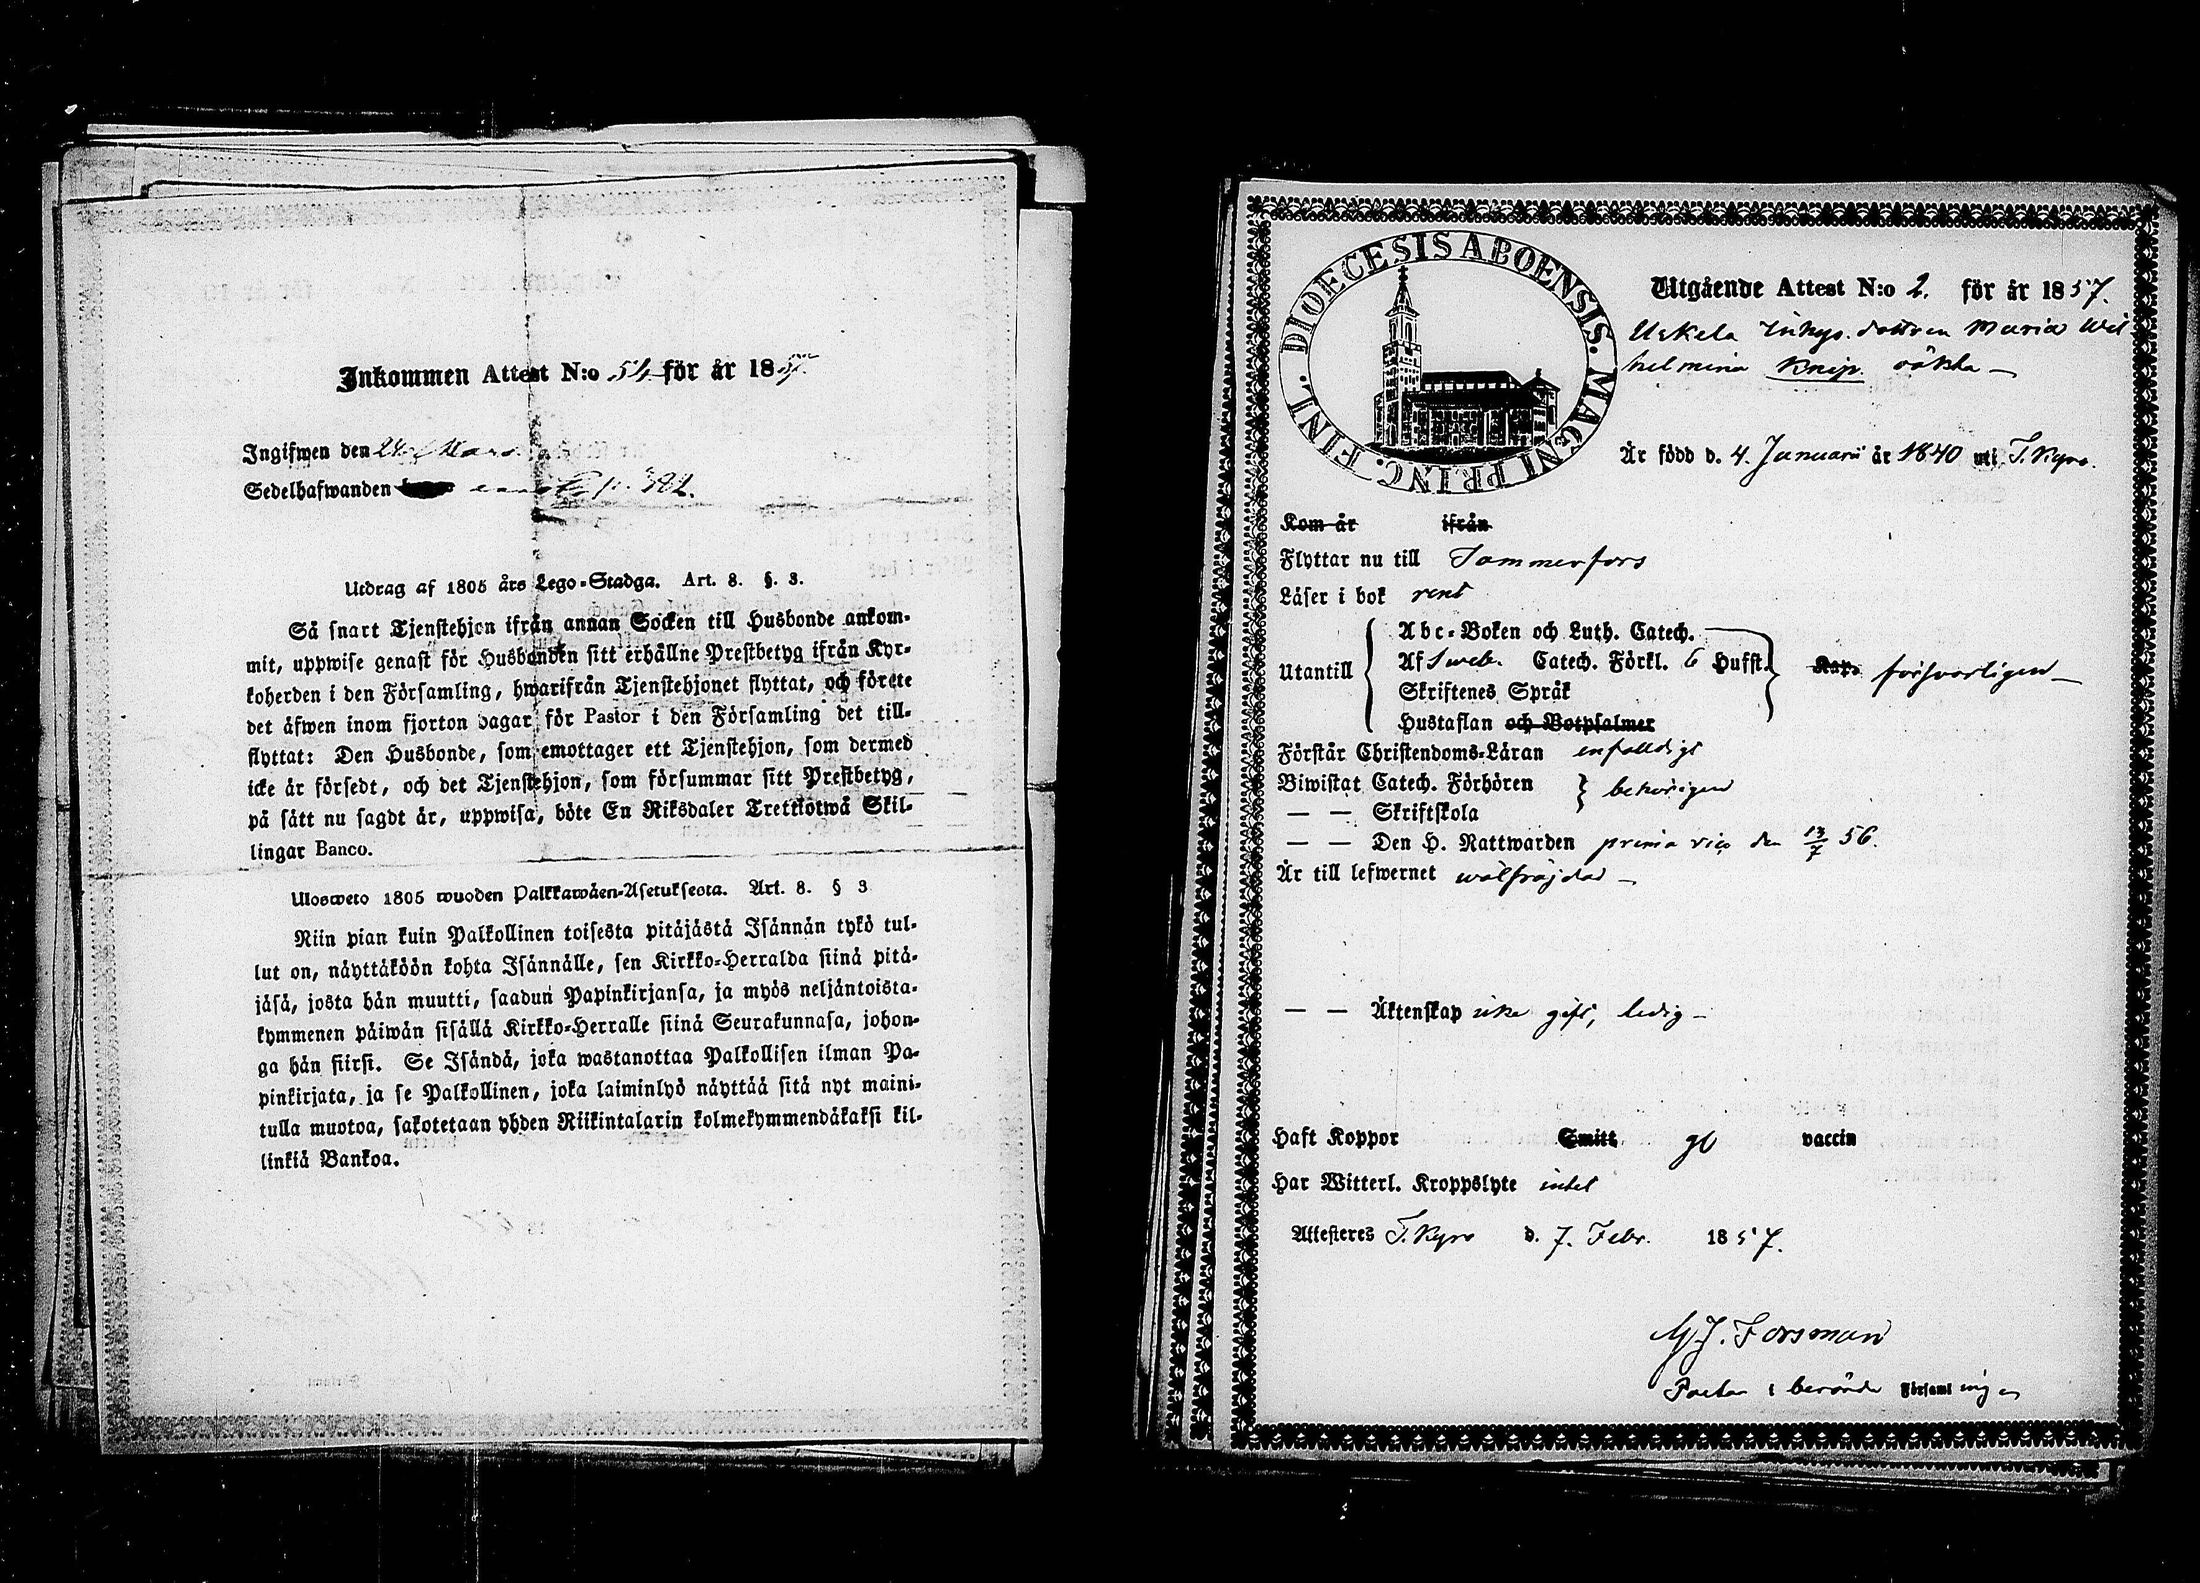 Inkommen Attest N:o 54 för år 1857
Ingifwen den 24 Mars
Sedelhafwanden
Utdrag af 1805 års Lego-Stadga. Art. 8. §. 3.
Så snart Tjenstehjon ifrån annan Socken till Husbonde ankom-
mit, uppwise genast för Husbonden sitt erhållne Prestbetyg ifrån Kyr-
koherden i den Församling, hwarifrån Tjenstehjonet flyttat, och förete
det äfwen inom fjorton dagar för Pastor i den Församling det till-
flyttat: Den Husbonde, som emottager ett Tjenstehjon, som dermed
icke är försedt, och det Tjenstehjon, som försummar sitt Prestbetyg,
på sätt nu sagdt är, uppwisa, böte En Riksdaler Trettiotwå Skil-
lingar Banco.
Ulosweto 1805 wuoden Palkkawäen-Asetuksesta. Art. 8. § 3
Niin pian kuin Palkollinen toisesta pitäjästä Isännän tykö tul-
lut on, näyttäköön kohta Isännälle, sen Kirkko-Herralda siinä pitä-
jäsä, josta hän muutti, saadun Papinkirjansa, ja myös neljäntoista-
kymmenen päiwän sisällä Kirkko-Herralle siinä Seurakunnasa, johon-
ga hän siirsi. Se Isändä, joka wastanottaa Palkollisen ilman Pa-
pinkirjata, ja se Palkollinen, joka laiminlyö näyttää sitä nyt maini-
tulla muotoa, sakotetaan yhden Riikintalarin kolmekymmendäkaksi kil-
linkiä Bankoa.
DIOECESIS ABOENSIS. MAGNI PRINC. FINL.
Utgående Attest N:o 2. för år 1857.
Uskela Inhys. dottren Maria Wil
helmina Knip. oäkta —
Är född d. 4. Januarii år 1840 uti T. Kyro.
Kom år ifrån
Flyttar nu till Tammerfors
Läser i bok rent
Abc-Boken och Luth. Catech.
Utantill Af Sweb. Catech. Förkl. 6 Hufst. Kap. försvarligen —
Skriftenes Språk
Hustaflan och Botpsalmer
Förstår Christendoms-Läran enfalldigt
Biwistat Catech. Förhören behörigen
— — Skriftskola
— — Den H. Nattwarden prima vice den 13/7 56.
Är till lefwernet wälfräjdad —
— — Äktenskap icke gift, ledig —
Haft Koppor Smitt gb vaccin
Har Witterl. Kroppslyte intet
Attesteres T. Kyro d. 7. Febr. 1857.
M J. Forsman
Pastor i berörde Församlingen